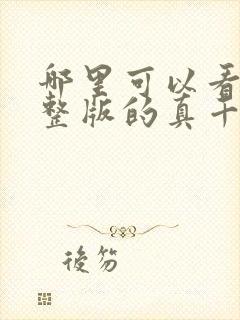 哪里可以看
整版的真十
後笏